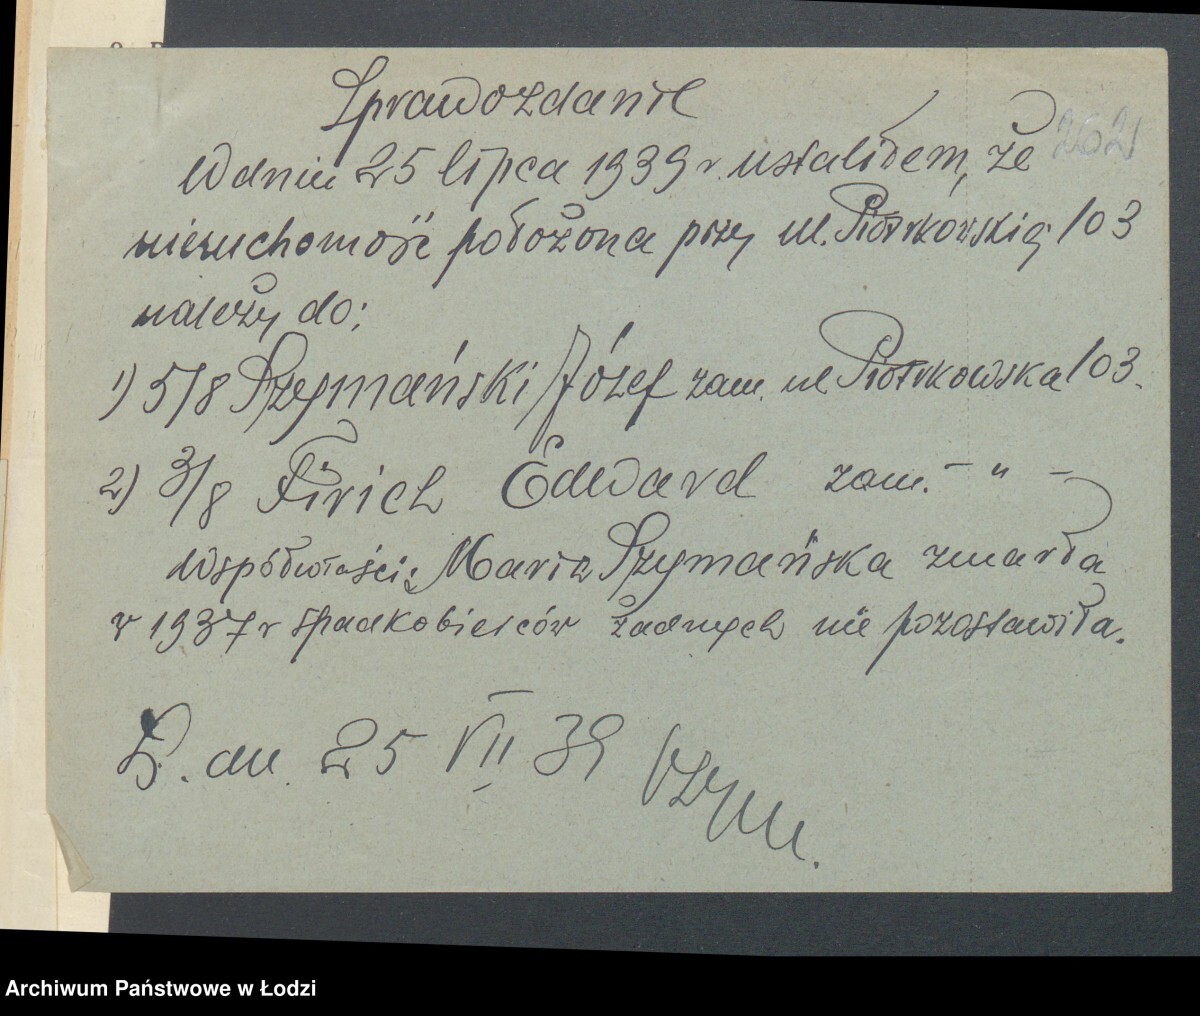 Sprawozdanie
262
W dniu 25 lipca 1939 r. ustaliłem, że
nieruchomość położona przy ul. Piotrkowskiej 103
należy do:
1) 5/8 Szymański Józef zam. ul Piotrkowska 103.
2) 3/8 Firich Edward zam. – " –
Współwłaści: Maria Szymańska zmarła
w 1937 r spadkobierców żadnych nie pozostawiła.
Ł. dn. 25 VII 39
Archiwum Państwowe w Łodzi